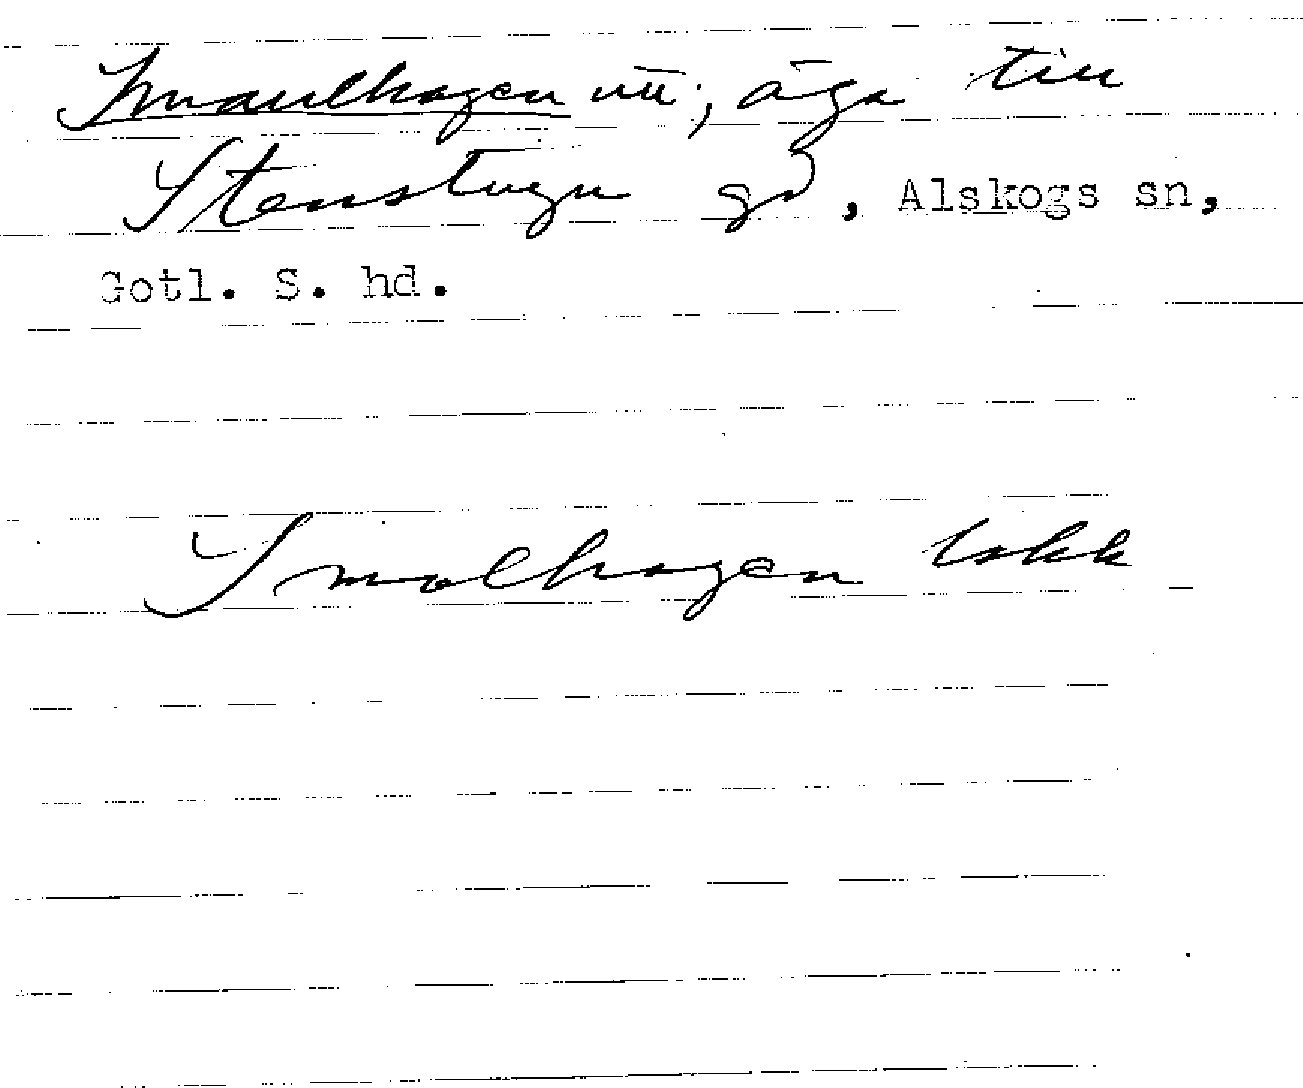 Smaulhagen utt; äga till
Stenstugu gd, Alskogs sn,
Gotl. S. hd.
Smolhagen